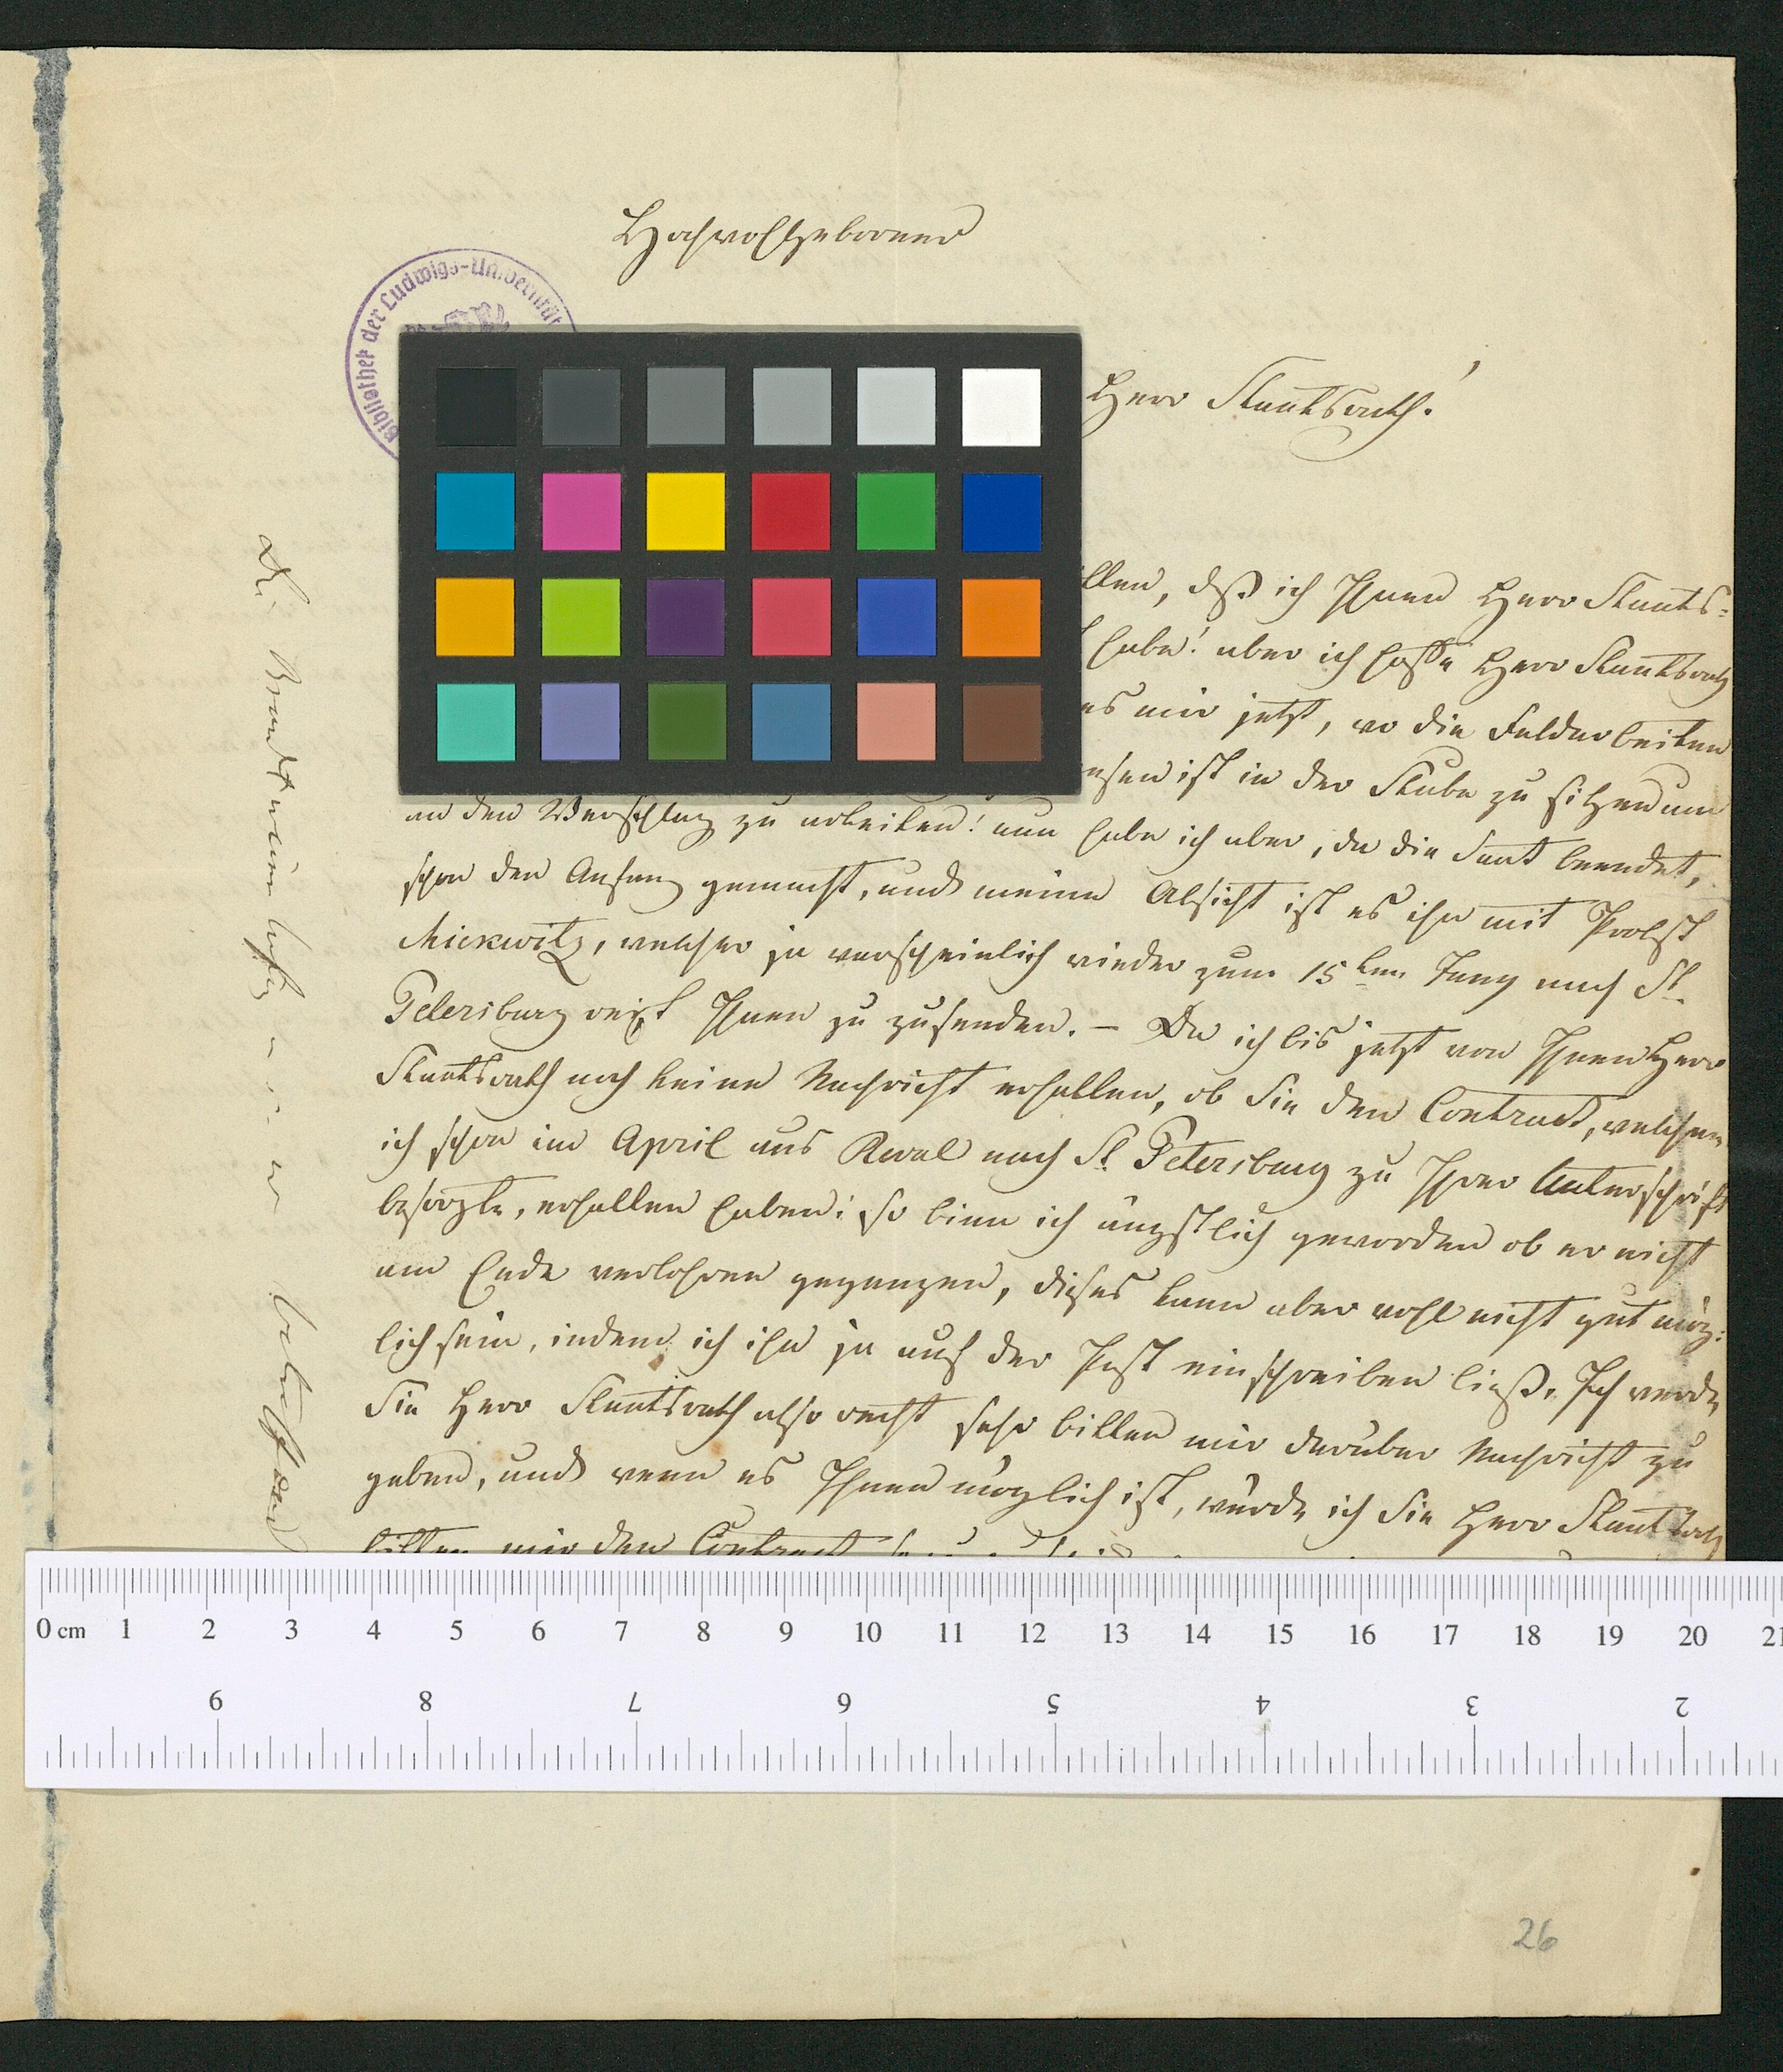 Hochwohlgeborner
Bibliothek der Ludwigs-Universität
Herr Staatsrath!
llen, dß ich Ihnen Herr Staats-
habe! aber ich hoffe Herr Staatsrath
es mir jetzt, wo die Feldarbeiten
esen ist in der Stube zu sitzen um
an den Verschlag zu arbeiten! nun habe ich aber, da die Saat beendet,
schon den Anfang gemacht, und meine Absicht ist es ihn mit Probst
Mickwitz, welcher ja warscheinlich wieder zum 15ten Juny nach St.
Petersburg reist Ihnen zu zusenden. – Da ich bis jetzt von Ihnen Herr
Staatsrath noch keine Nachricht erhalten, ob Sie den Contract, welchen
ich schon im April aus Reval nach St. Petersburg zu Ihrer Unterschrift
besorgte, erhalten haben: so binn ich ängstlich geworden ob er nicht
am Ende verlohren gegangen, dieses kann aber wohl nicht gut mög:
lich sein, indem ich ihn ja auf der Post einschreiben ließ. Ich werde
Sie Herr Staatsrath also recht sehr bitten mir darüber Nachricht zu
geben, und wenn es Ihnen möglich ist, würde ich Sie Herr Staatsrath
bitten mir den Contract
Die Brandtwein
0 cm 1 2 3 4 5 6 7 8 9 10 11 12 13 14 15 16 17 18 19 20 21
9 8 7 6 5 4 3 2
26